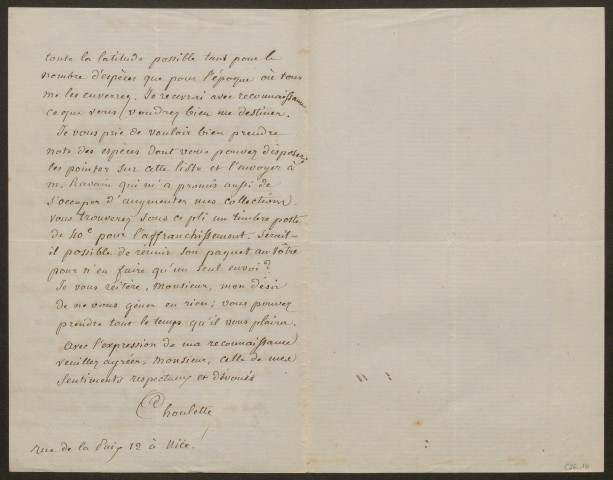 toute la latitude possible tant pour le
nombre d'espèces que pour l'époque où vous
me les enverrez. Je recevrai avec reconnaissance
ce que vous voudrez bien me destiner.
Je vous prie de vouloir bien prendre
note des espèces dont vous pouvez disposer,
les pointer sur cette liste et l'envoyer à
m. Ravain qui m'a promis aussi de
s'occuper d'augmenter mes collections.
vous trouverez sous ce pli un timbre poste
de 40c pour l'affranchissement. Serait-
il possible de réunir son paquet au vôtre
pour n'en faire qu'un seul envoi?
Je vous réitère, Monsieur, mon désir
de ne vous gêner en rien; vous pouvez
prendre tout le temps qu'il vous plaira.
Avec l'expression de ma reconnaissance
veuillez agréer, Monsieur, celle de mes
sentiments respectueux et dévoués
Choulette
rue de la Paix 12 à Nice.